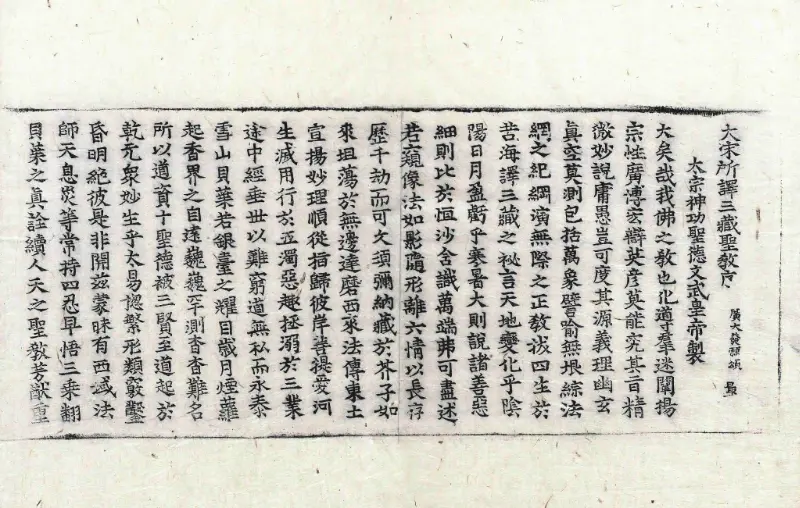 大宋所譯三藏聖教序 廣大發願頌 最
太宗神功聖德文武皇帝製
大矣哉我佛之教也化導羣迷闡揚
宗性廣博宏辯英彦莫能究其旨精
微妙說庸愚豈可度其源義理幽玄
真空莫測包括萬象譬喻無垠綜法
網之紀綱演無際之正教拔四生於
苦海譯三藏之祕言天地變化乎陰
陽日月盈虧乎寒暑大則說諸善惡
細則比於恒沙含識萬端弗可盡述
若窺像法如影隨形離六情以長存
歷千劫而可久須彌納藏於芥子如
來坦蕩於無邊達磨西來法傳東土
宣揚妙理順從指歸彼岸菩提愛河
生滅用行於五濁惡趣拯溺於三業
途中經垂世以難窮道無私而永泰
雪山貝葉若銀臺之耀目歲月煙蘿
起香界之自遠巍巍罕測杳杳難名
所以道資十聖德被三賢至道起於
乾元衆妙生乎太易揔繁形類竅鑿
昏明絕彼是非開茲蒙昧有西域法
師天息災等常持四忍早悟三乘翻
貝葉之真詮續人天之聖教芳猷重